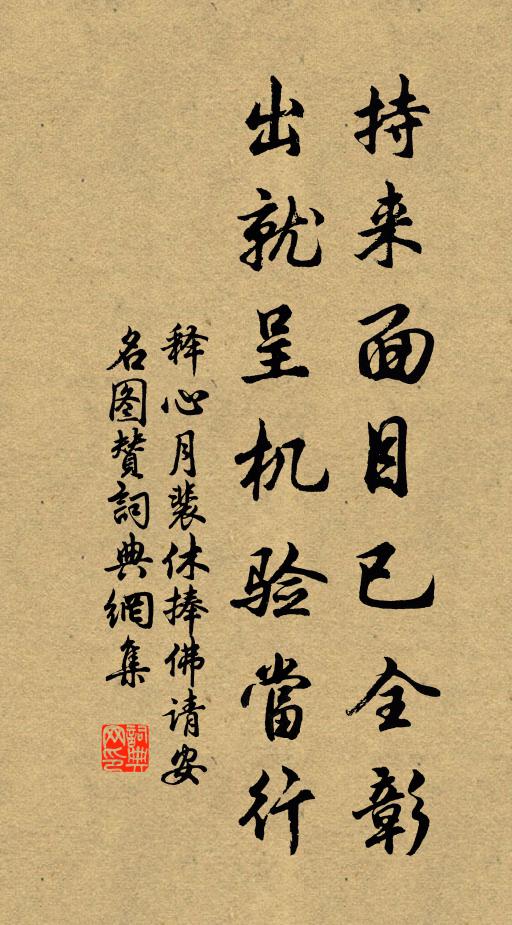 持来面目已全彰
出就呈机验當行
释心月裴休捧佛请安
名图赞詞典網集
詞典网印